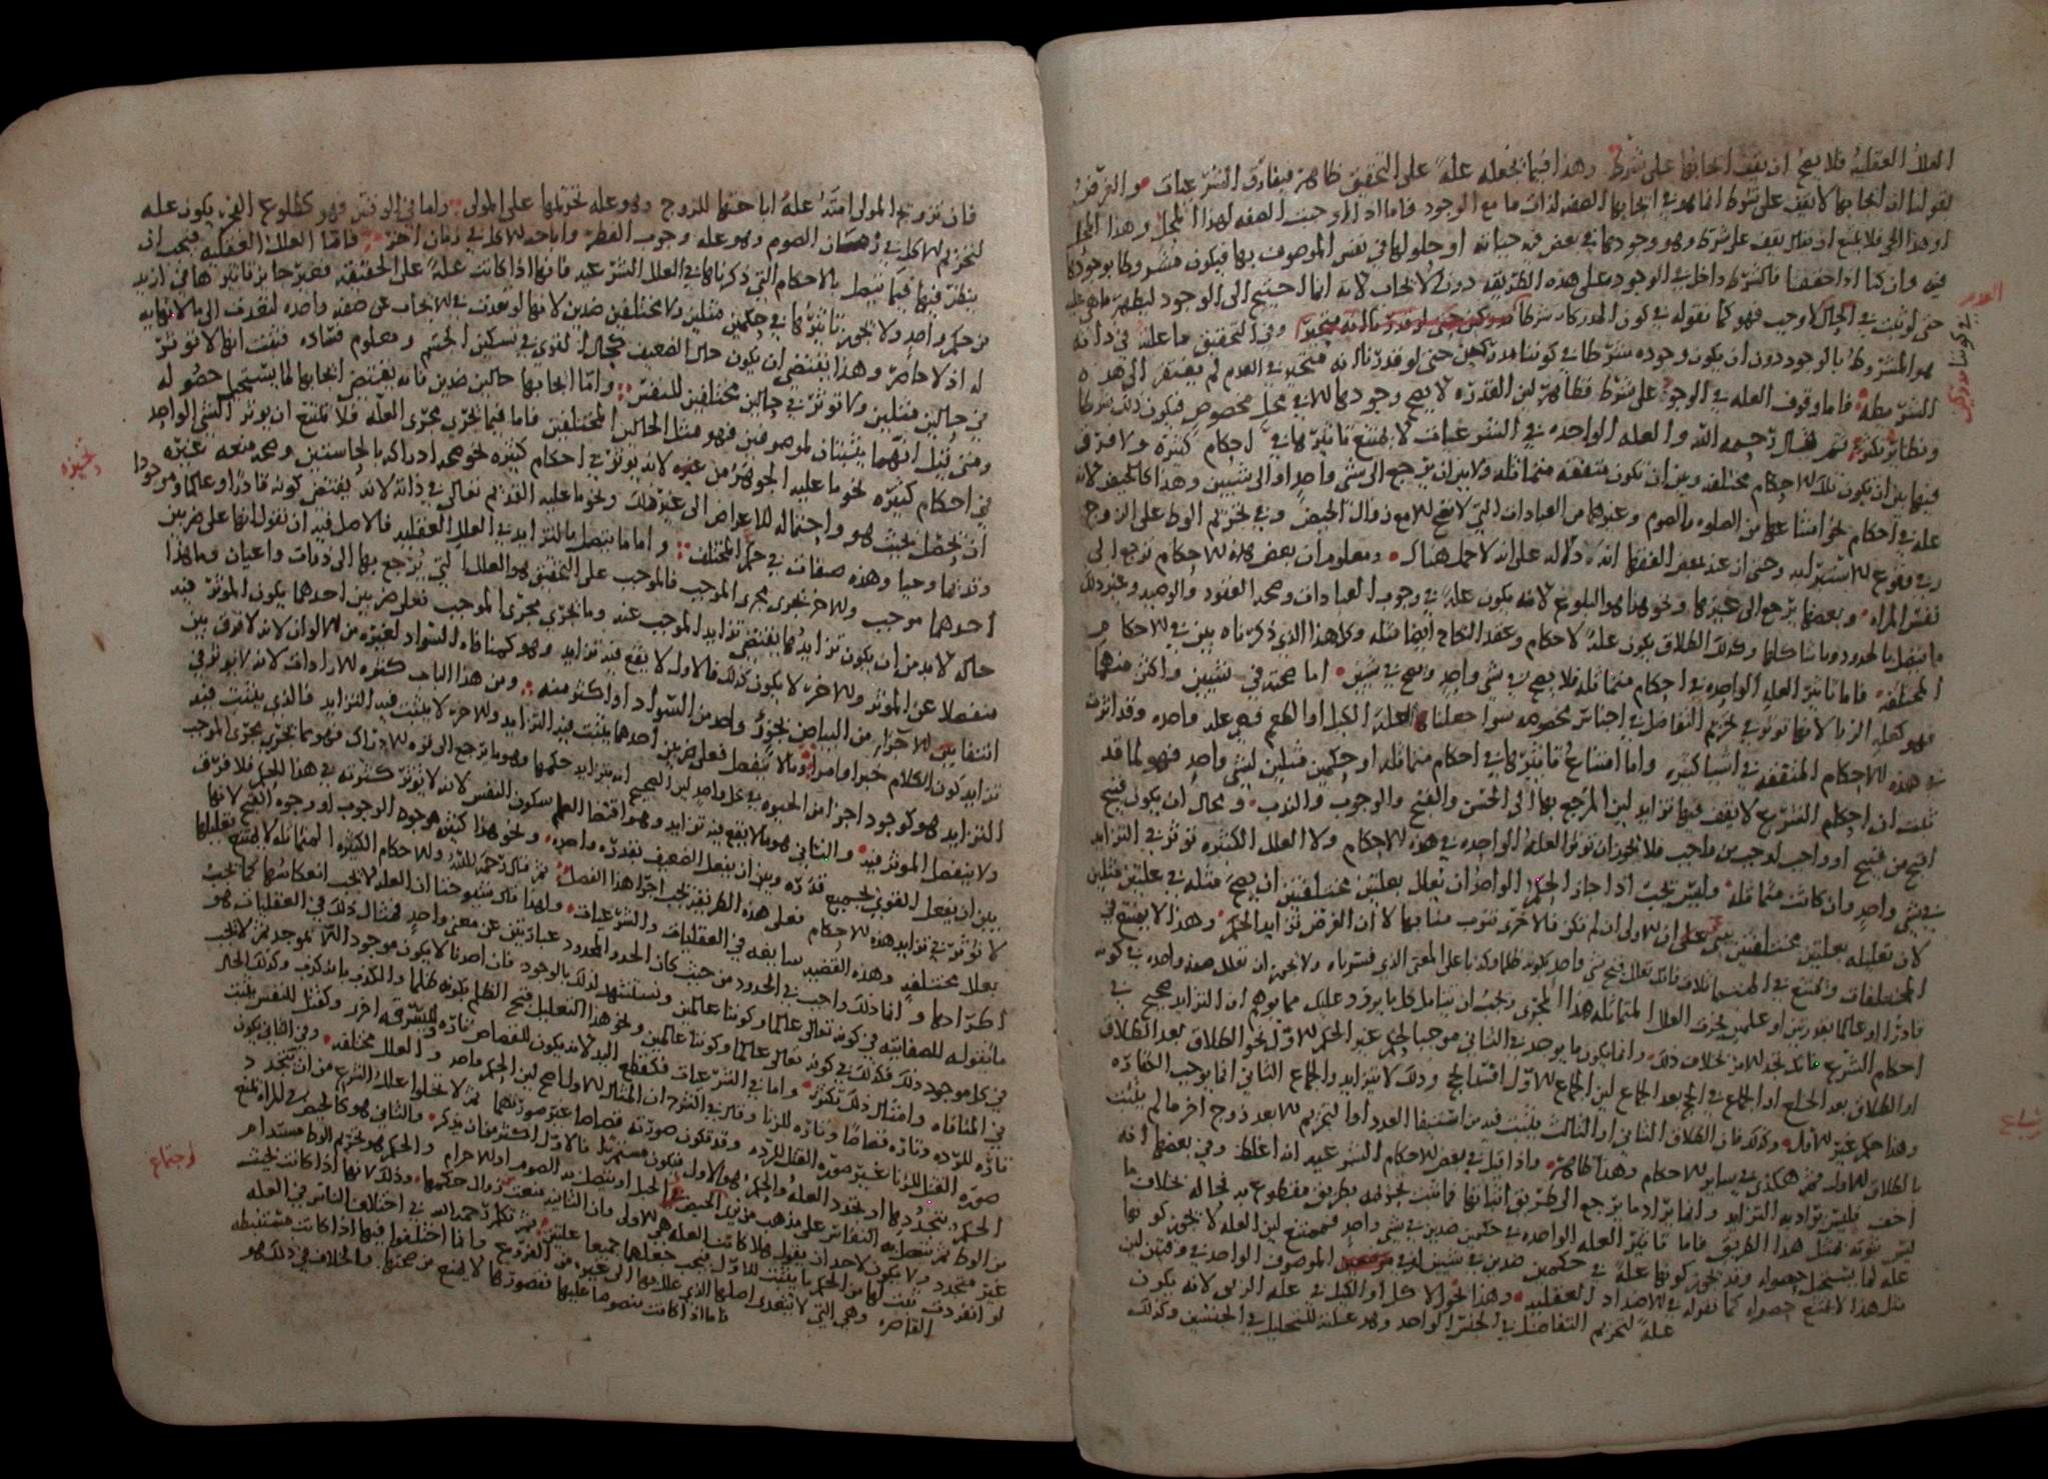 العلل العقليه فلا يصح ان يقف ايجابها على شرط وهذا فيما نجعله علة على التحقيق ظاهر فيفارق الشرعيات والغرض
بقولنا ان ايجابها لا يقف على شرط انما هو في ايجابها الصفه لذات ما مع الوجود فاما اذا اوجبت الصفه لهذا المحل وهذا الحمل
او هذا الحي فلا يمتنع ان يقف على شرط وهو وجودها في بعض فيه حياته او حلولها في نفس الموصوف بها فيكون مشروطا بوجودها
فيه وان كنا اذا حققنا فالشرط داخل في الوجود على هذه الطريقه دون الايجاب لانه انما احتيج الى الوجود ليظهر ما هي عليه
حتى لو ثبت في الحال لاوجب فهو كما نقوله في كون
هو المشروط بالوجود دون ان يكون وجوده شرطا في كوننا مدركين حتى لو قدرنا انه متحيز في العدم لم يفتقر الى هذه
الشريطه فاما وقوف العله في الوجود على شرط فظاهر لان القدره لا يصح وجودها الا في محل مخصوص فيكون ذلك شرطا
ونظايره تكثر ثم قال رحمه الله والعله الواحده في الشرعيات لا يمتنع تاثيرها في احكام كثيره ولا فرق
فيها بين ان تكون تلك الاحكام مختلفه وبين ان تكون متفقه متماثله ولا بين ان يرجع الى شى واحد او الى شيئين وهذا كالحيض لانه
عله في احكام نحو امتناعها من الصلوه والصوم وغيرهما من العبادات التي لا تصح الا مع زوال الحيض وفي تحريم الوطى على الزوج
وفي وقوع الاستبرا به وحتى ان عند بعض الفقها انه دلاله على انه لا حمل هناك ومعلوم ان بعض هذه الاحكام ترجع الى
نفس المراه وبعضها يرجع الى غيرها ونحو هذا هو البلوغ لانه يكون علة في وجوب العبادات وصحه العقود والوصيه وغير ذلك
ما يتصل بالحدود وما شاكلها وكذلك الطلاق يكون علة لاحكام وعقد النكاح ايضا مثله وكل هذا الذي ذكرناه بين في الاحكام
المختلفه فاما تاثير العله الواحده في احكام متماثله فلا يصح في شى واحد ويصح في شيئين اما صحته في شيئين واكثر منهما
فهو كعله الربا لانها تؤثر في تحريم التفاضل في اجناس مخصوصه سوا جعلنا العلة الكيل او الطعم فهي عله واحده وقد اثرت
في هذه الاحكام المتفقه في اشيا كثيره واما امتناع تاثيرها في احكام متماثله او حكمين مثلين لشى واحد فهو لما قد
ثبت ان احكام الشرع لا يقف فيها تزايد لان المرجع بها الى الحسن والقبح والوجوب والندب ومحال ان يكون قبيح
اقبح من قبيح او واجب اوجب من واجب فلا يجوز ان تؤثر العله الواحده في هذه الاحكام ولا العلل الكثيره تؤثر في التزايد
في شى واحد وان كانت متماثله وليس يجب اذا جاز الحكم الواحد ان يعلل بعلتين مختلفتين ان يصح مثله في علتين مثلين
لان تعليله بعلتين مختلفتين يبنى على ان الاولى ان لم تكن فالاخرى تنوب منابها لا ان الغرض تزايد الحكم وهذا لا يمتنع في
المختلفات ويمتنع في المتماثلات فانك تعلل قبح شى واحد بكونه ظلما وكذبا على المعنى الذي فسرناه ولا يجوز ان تعلل صفه واحده في كونه
قادرا او عالما بقدرتين او علمين يجرى العلل المتماثله هذا المجرى ويجب ان يتامل كل ما يرد عليك مما يوهم ان التزايد صحيح في
احكام الشرع فانك تجد الامر بخلاف ذلك وانما يكون ما يوجد في الثاني موجبا لحكم غير الحكم الاول نحو الطلاق بعد الطلاق
او الطلاق بعد الخلع او الجماع في الحج بعد الجماع لان الجماع الاول افسد الحج وذلك لا يتزايد والجماع الثاني انما يوجب الكفاره
وهذا حكم غير الاول وكذلك فان الطلاق الثاني او الثالث يثبت فيه من استيفا العدد او التحريم الا بعد زوج اخر ما لم يثبت
بالطلاق الاول فهي هكذى في ساير الاحكام وهذا ظاهر واذا قيل في بعض الاحكام الشرعيه انه اغلظ وفي بعضها انه
اخف فليس يراد به التزايد وانما يراد ما يرجع الى طريق اثباتها فما ثبت بطريق مقطوع به فحاله بخلاف ما
ليس ثبوته بمثل هذا الطريق فاما تاثير العله الواحده في حكمين ضدين في شى واحد فممتنع لان العله لا يجوز كونها
عله لما يستحيل حصوله وقد يجوز كونها علة في حكمين ضدين في شيئين او في الموصوف الواحد في وقتين لان
مثل هذا لا يمتنع حصوله كما نقوله في الاضداد العقليه وهذا نحو الاكل او الكيل في عله الربى لانه يكون
علة لتحريم التفاضل في الجنس الواحد وهو عله للتحليل في الجنسين وكذلك
شايع
فان تزويج المولى امته علة اباحتها للزوج وهو عله تحريمها على المولى واما في الوقتين فهو كطلوع الفجر يكون عله
لتحريم الاكل في زمان الصوم وهو عله وجوب الفطر واباحه الاكل في زمان اخر فاما العلل العقليه فيجب ان
ينظر فيها فيما يتصل بالاحكام التي ذكرناها في العلل الشرعيه فانها اذا كانت علة على الحقيقه فغير جايز تاثيرها في ازيد
من حكم واحد ولا يجوز تاثيرها في حكمين مثلين ولا مختلفين ضدين لانها لو تعدت في الايجاب عن صفه واحده لتعدت الى ما لا نهايه
له اذ لا حاصر وهذا يقتضي ان يكون حال الضعيف كحال القوي في تسكين الجسم ومعلوم فساده فثبت انها لا تؤثر
في حالين مثلين ولا تؤثر في حالين مختلفين للنفس واما ايجابها حالين ضدين فانه يقتضي ايجابها لما يستحيل حصوله
ومتى قيل انهما يثبتان لموصوفين فهو مثل الحالين المختلفين فاما فيما يجري مجرى العله فلا يمتنع ان يوثر الشى الواحد
في احكام كثيره نحو ما عليه الجوهر من تحيزه لانه يوثر في احكام كثيره نحو صحه ادراكه بالحاستين وصحه منعه غيره
ان يحصل بحيث هو واحتماله للاعراض الى غير ذلك ونحو ما عليه القديم تعالى في ذاته لانه يقتضي كونه قادرا وعالما وموجودا
وقديما وحيا وهذه صفات في حكم المختلف واما ما يتصل بالتزايد في العلل العقليه فالاصل فيه ان نقول انها على ضربين
احدهما موجب والاخر يجرى مجرى الموجب فالموجب على التحقيق هو العلل التي يرجع بها الى ذوات واعيان وما هذا
حاله لا بد من ان يكون تزايدها يقتضي تزايد الموجب عنه وما يجري مجرى الموجب فعلى ضربين احدهما يكون الموثر فيه
منفصلا عن الموثر والاخر لا يكون كذلك فالاول لا يقع فيه تزايد وهو كمنافاه السواد لغيره من الالوان لانه لا فرق بين
انتفا الاجزا من البياض بجزء واحد من السواد او اكثر منه ومن هذا الباب كثره الارادات لانه لا يؤثر في
تزايد كون الكلام خبرا وامرا وما لا ينفصل فعلى ضربين احدهما يثبت فيه التزايد والاخر لا يثبت فيه التزايد فالذي يثبت فيه
التزايد هو كوجود اجزا من الحيوه في محل واحد لان الصحيح انه يتزايد حكمها وهو ما يرجع الى قوه الادراك فهو مما يجري مجرى الموجب
ولا ينفصل الموثر فيه والثاني هو ما لا يقع فيه تزايد وهو اقتضا العلم سكون النفس لانه لا يؤثر كثرته في هذا الحكم فلا فرق
بين ان يفعل القوي بجميع قدره وبين ان يفعل الضعيف بقدره واحده ونحو هذا كثره وجوه الوجوب او وجوه القبح لانها
لا تؤثر في تزايد هذه الاحكام فعلى هذه الطريقه يجب اجرا هذا الفصل ثم قال رحمه الله والاحكام الكثيره المتماثله لا يمتنع تعليلها
بعلل مختلفه وهذه القضيه سايغه في العقليات والشرعيات ولهذا قال شيوخنا ان العله لا يجب انعكاسها كما يجب
اطرادها وانما ذلك واجب في الحدود من حيث كان الحد والمحدود عبارتين عن معنى واحد فمثال ذلك في العقليات هو
ما نقوله للصفاتيه في كونه تعالى عالما وكوننا عالمين ونستشهد لذلك بالوجود فان احدنا لا يكون موجودا
في كل موجود ذلك فكذلك في كونه تعالى عالما وكوننا عالمين ونحو هذا التعليل قبح الظلم بكونه ظلما والكذب بانه كذب وكذلك الحال
في المنافاه وامثال ذلك تكثر واما في الشرعيات فكقطع اليد لانه يكون للقصاص تاره وللسرقه اخرى وكقتل النفس يثبت
تاره للرده وتاره قصاصا وتاره للزنا وقال في الشرح ان المثال الاول اصح لان الحكم واحد والعلل مختلفه وفي الثاني يكون
صوره القتل للزنا غير صوره القتل للرده وقد تكون صورته قصاصا غير صورتهما ثم لا تخلوا علل الشرع من ان يتجدد
الحكم بتجددها او تجدد العله والحكم هو الاول فيكون مستمرا فالاول اكثر من ان يذكر والثاني هو كالحيض في المراه يمنع
من الوطى ثم يتصل به النفاس على مذهب من يرى الحيض في الحبل او يتصل به الصوم او الاحرام والحكم هو تحريم الوطى مستدام
غير متجدد ولا يمكن لاحد ان يقول هلا كانت العله هي الاولى دون الثانيه لانه لا يجب زوال حكمهما وذلك لانها اذا كانت بحيث
لو انفردت يثبت لها من الحكم ما يثبت للاول فيجب جعلهما جميعا علتين ثم تكلم رحمه الله في اختلاف الناس في العله
القاصره وهي التي لا تتعدى اصلها الذي علل بها الى غيره من الفروع وانما اختلفوا فيها اذا كانت مستنبطه
فاما اذا كانت منصوصا عليها فقصورها لا يمنع من صحتها والخلاف في ذلك هو
تحيزه
اجتماع